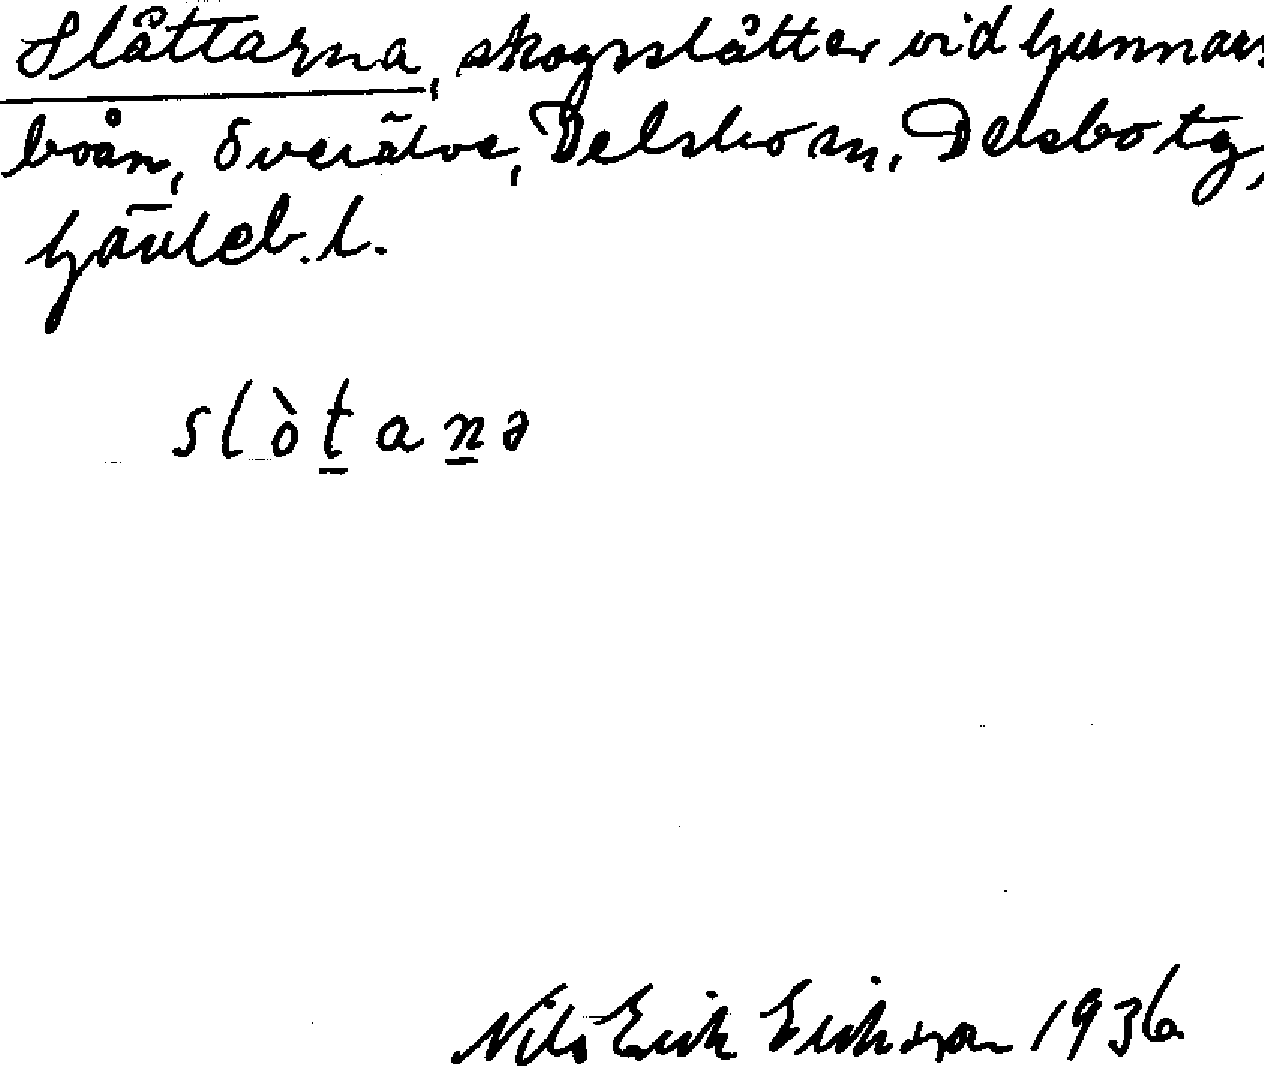 Slåttarna, skogsslåtter vid Gunnars
boån, Överälve, Delsbo sn, Delsbo tg,
Gävleb. l.
slòt̲an̲ə
Nils Erik Erikson 1936